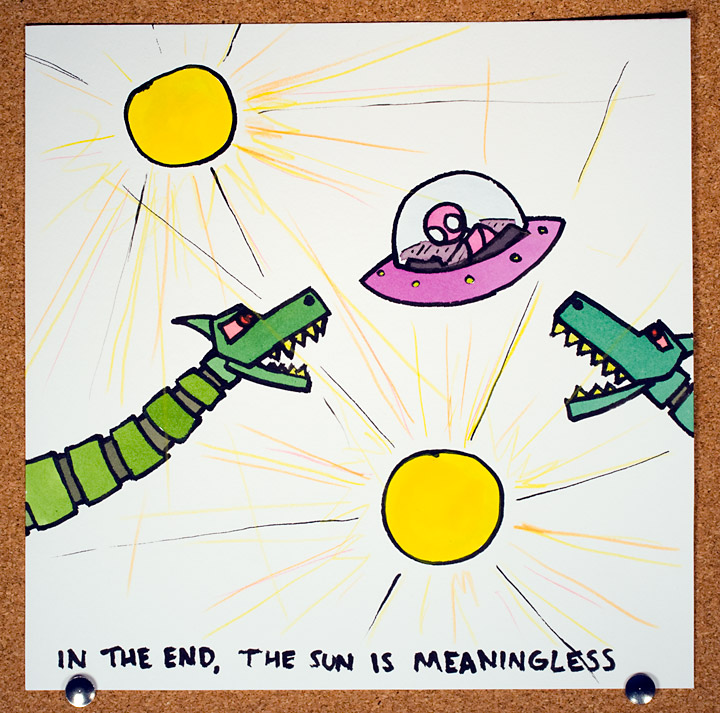 IN THE END, THE SUN IS MEANINGLESS